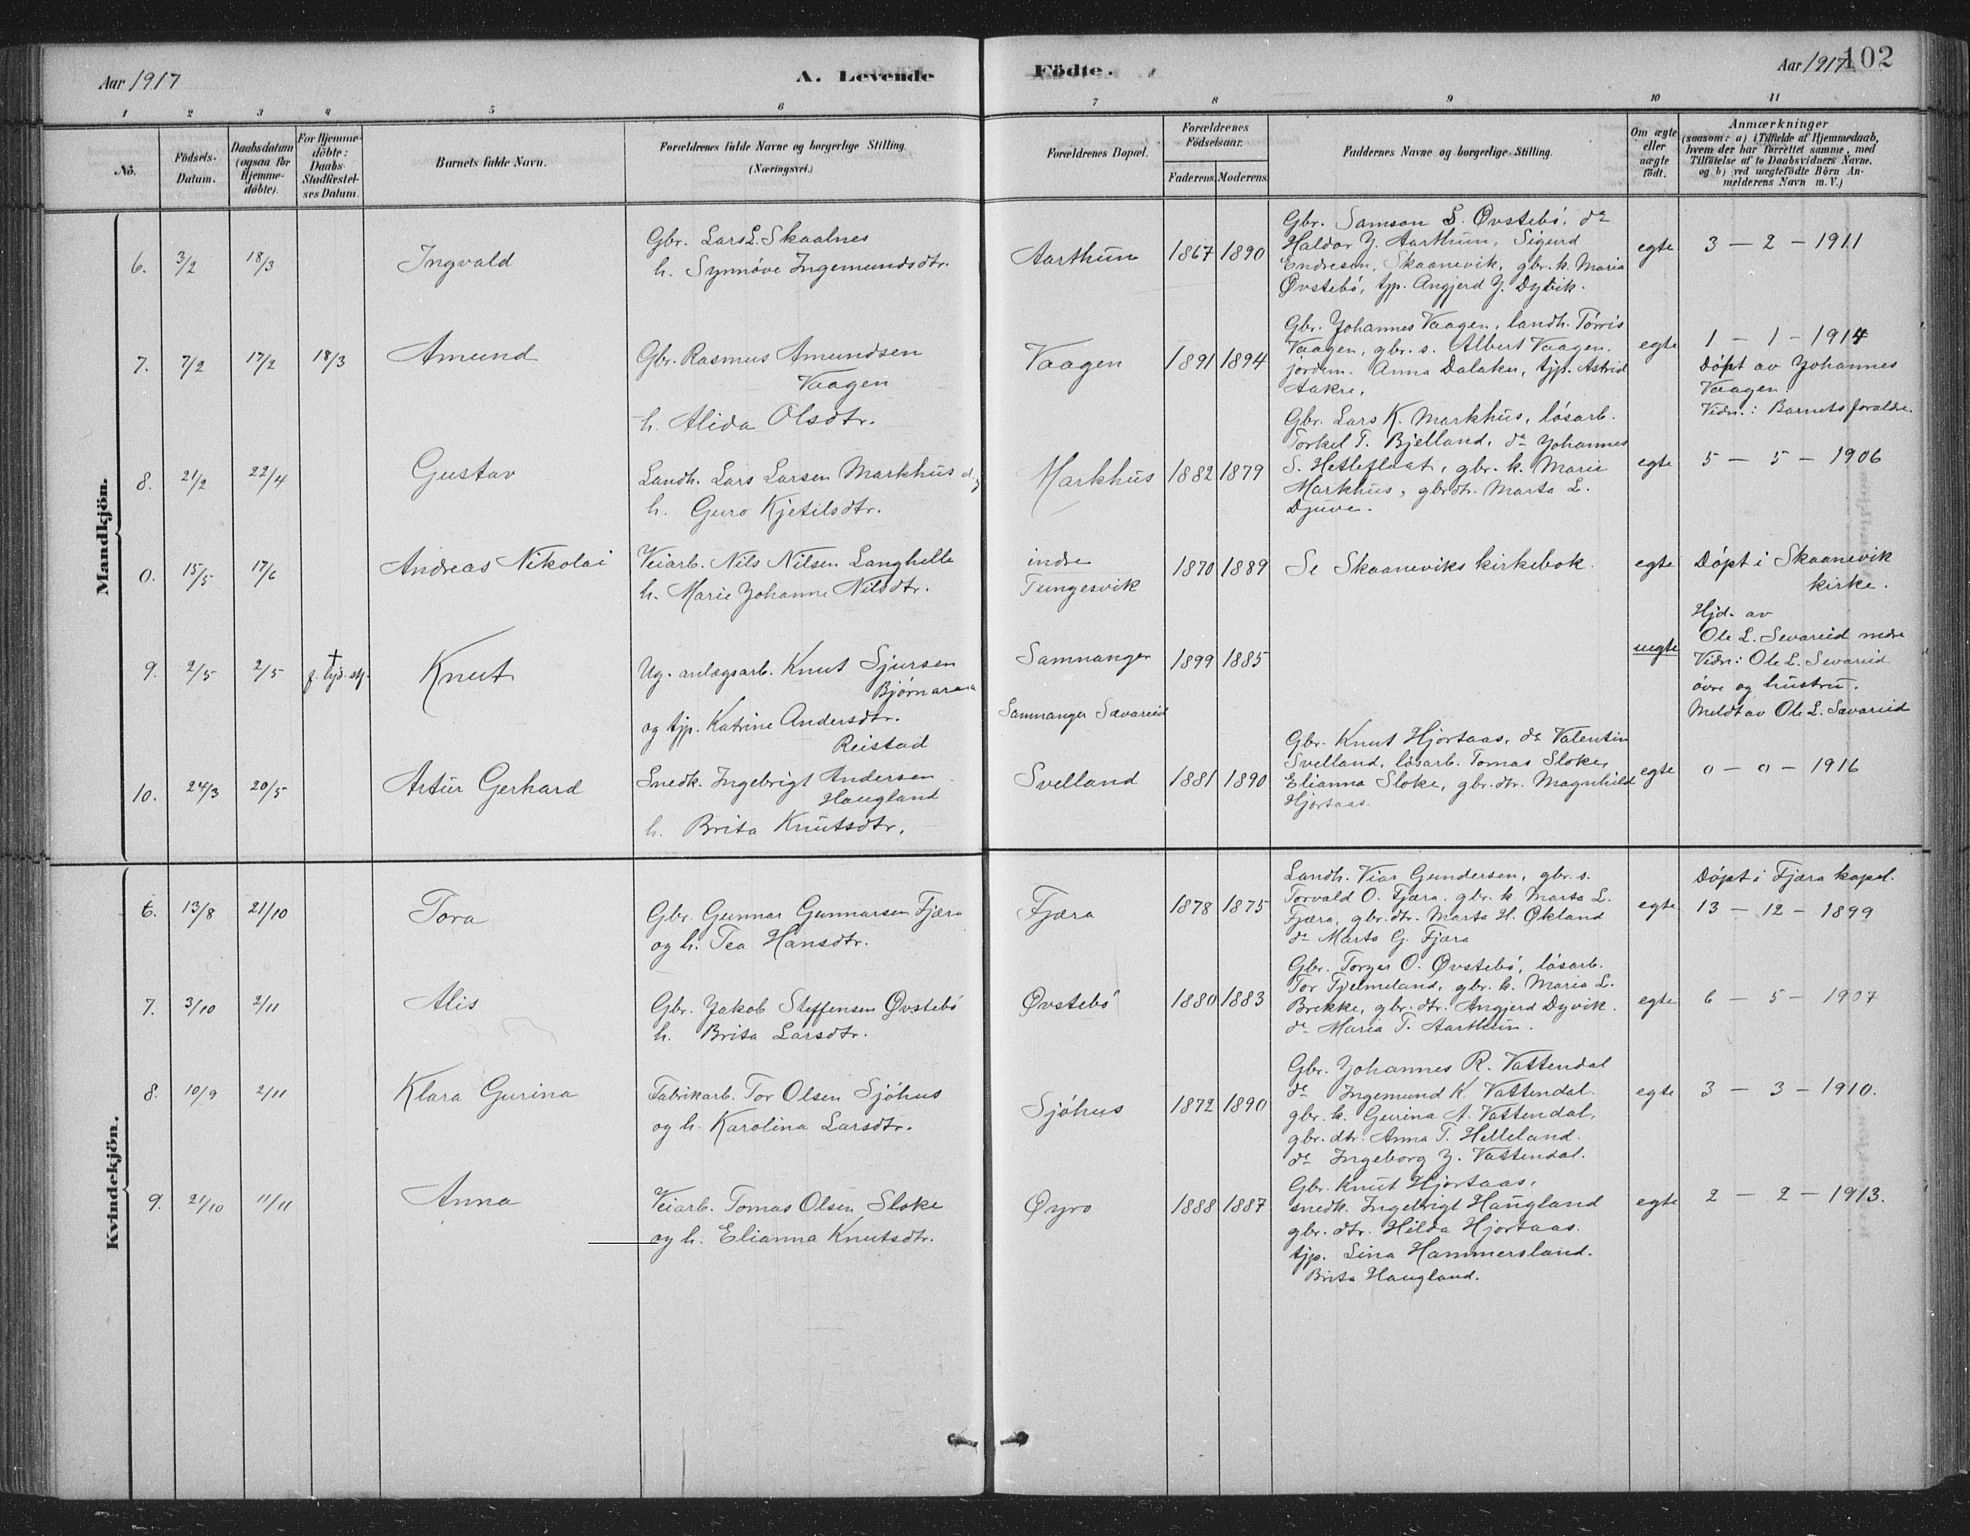 Aar 1917
A. Levende
Fødte.
Aar 1917
102
1 2 3 4 5 6 7 8 9 10 11
No.
Födsels-
Datum.
Daabsdatum
(ogsaa for
Hjemme-
döbte).
For Hjemme-
döbte:
Daabs
Stadfæstel-
ses Datum.
Barnets fulde Navn.
Forældrenes fulde Navne og borgerlige Stilling.
(Næringsvei.)
Forældrenes Bopæl.
Forældrenes
Födselsaar.
Faderens. Moderens.
Faddernes Navne og borgerlige Stilling.
Om ægte
eller
uægte
födt.
Anmærkninger
(saasom: a) i Tilfælde af Hjemmedaab,
hvem der har forrettet samme, med
Tilföielse af to Daabsvidners Navne,
og b) ved uægtefödte Börn An-
melderens Navn m. V.)
Mandkjön.
6. 3/2 18/3
Ingvald
Gbr. Lars L. Skaalnes
h. Synnøve Ingemundsdtr.
Aarthun
1867 1890
Gbr. Samson S. Øvstebö, do
Haldor J. Aarthun, Sigurd
Endresen, Skaanevik, gbr. k. Maria
Øvstebö, tjp. Angjerd J. Dyvik.
egte
3 — 2 — 1911
7. 7/2 17/2 18/3
Amund
Gbr. Rasmus Amundsen
Vaagen
h. Alida Olsdtr.
Vaagen
1891 1894
Gbr. Johannes Vaagen, landh. Torris
Vaagen, gbr. s. Albert Vaagen,
jordm. Anna Dalaker, tjp. Astrid
Aakre,
egte
1 — 1 — 1914
Døpt av Johannes
Vaagen
Vidn.: Barnets forældre.
8. 21/2 22/4
Gustav
Landh. Lars Larsen Markhus og
h. Guro Kjetilsdtr.
Markhus
1882 1879
Gbr. Lars K. Markhus, løsarb.
Torkel T. Bjelland, do Johannes
S. Hetleflaat, gbr. k. Marie
Markhus, gbrdtr. Marta L.
Djuve.
egte
5 — 5 — 1906
0. 15/5 17/6
Andreas Nikolai
Veiarb. Nils Nilsen Langhelle
h. Marie Johanne Nilsdtr.
indre
Tungesvik
1870 1889
Se Skaaneviks kirkebok.
egte
Døpt i Skaanevik
kirke.
9. 2/5 2/5
Knut
Ug. anlægsarb. Knut Sjursen
og tjp. Katrine Andersdtr.
Reistad
Samnanger
Samnanger Sævareid
1899 1885
uegte
Hjd. av
Ole L. Sevareid nedre
Vidn: Ole L. Sevareid
øvre og hustru.
Meldt av Ole L. Sævareid
10. 24/3 20/5
Artur Gerhard
Snedk. Ingebrigt Andersen
Haugland
h. Brita Knutsdtr.
Svelland
1881 1890
Gbr. Knut Hjortaas, do Valentin
Svelland, løsarb. Tomas Sloke,
Elianna Sloke, gbr. dtr. Magnhild
Hjortaas.
egte
0 — 0 — 1916
Kvindekjön.
6. 13/8 21/10
Tora
Gbr. Gunnar Gunnarsen Fjæra
og h. Tea Hansdtr.
Fjæra
1878 1875
Landh. Viar Gundersen, gbr. s.
Torvald O. Fjæra, gbr. k. Marta L.
Fjæra, gbr. dtr. Marta H. Økland
do Marta G. Fjæra
egte
Døpt i Fjæra kapel.
13 — 12 — 1899
7. 3/10 2/11
Alis
Gbr. Jakob Steffensen Øvstebö
h. Brita Larsdtr.
Øvstebö
1880 1883
Gbr. Torger O. Øvstebö, løsarb.
Tor Fjelmeland, gbr. k. Maria L.
Brekke, gbr. dtr. Angjerd Dyvik.
do Maria T. Aarthun.
egte
6 — 5 — 1907
8. 10/9 2/11
Klara Gurina
Fabrikarb. Tor Olsen Sjöhus
og h. Karolina Larsdtr.
Sjöhus
1872 1890
Gbr. Johannes R. Vattendal
do Ingemund K. Vattendal.
gbr. k. Gurina A. Vattendal,
gbr. dtr. Anna T. Helleland.
do Ingeborg J. Vattendal.
egte
3 — 3 — 1910.
9. 21/10 11/11
Anna
Veiarb. Tomas Olsen Sloke
og h. Elianna Knutsdtr.
Øyro
1888 1887
Gbr. Knut Hjortaas,
snedk. Ingebrigt Haugland
gbr. dtr. Hilda Hjortaas.
tjp. Lina Hammersland.
Brita Haugland.
egte
2 — 2 — 1913.